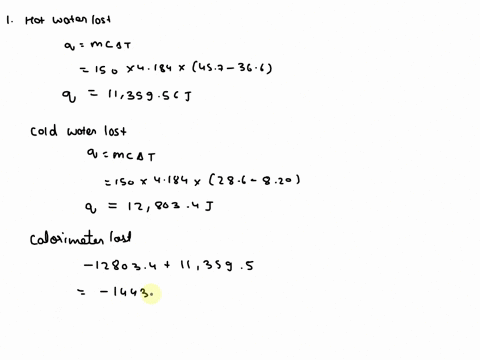 1. Hot water lost
q = mcΔT
= 150 × 4.184 × (45.7 - 36.6)
q = 11,359.56J
Cold water lost
q = mcΔT
= 150 × 4.184 × (28.6 - 8.20)
q = 12,803.4 J
Calorimeter lost
-12803.4 + 11,359.5
= -1443.